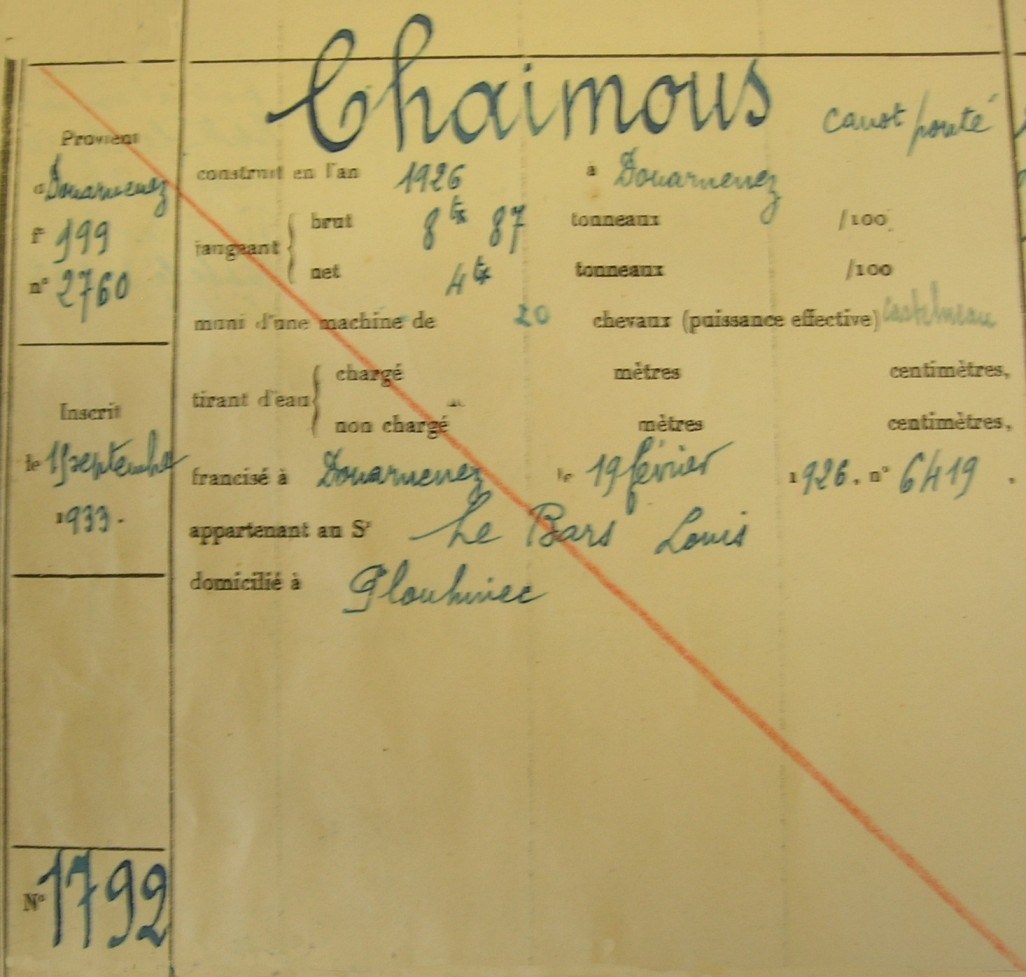 Chaimous canot ponté
Provient
a Douarnenez
f° 199
n° 2760
Inscrit
le 1 septembre
1933.
N° 1792
construit en l'an 1926 à Douarnenez
jaugeant brut 8 tx 87 tonneaux /100
net 4 tx tonneaux /100
muni d'une machine de 20 chevaux (puissance effective)
tirant d'eau chargé mètres centimètres,
non chargé mètres centimètres,
francisé à Douarnenez le 19 février 1926. n° 6419.
appartenant au Sr Le Bars Louis
domicilié à Plouhinec